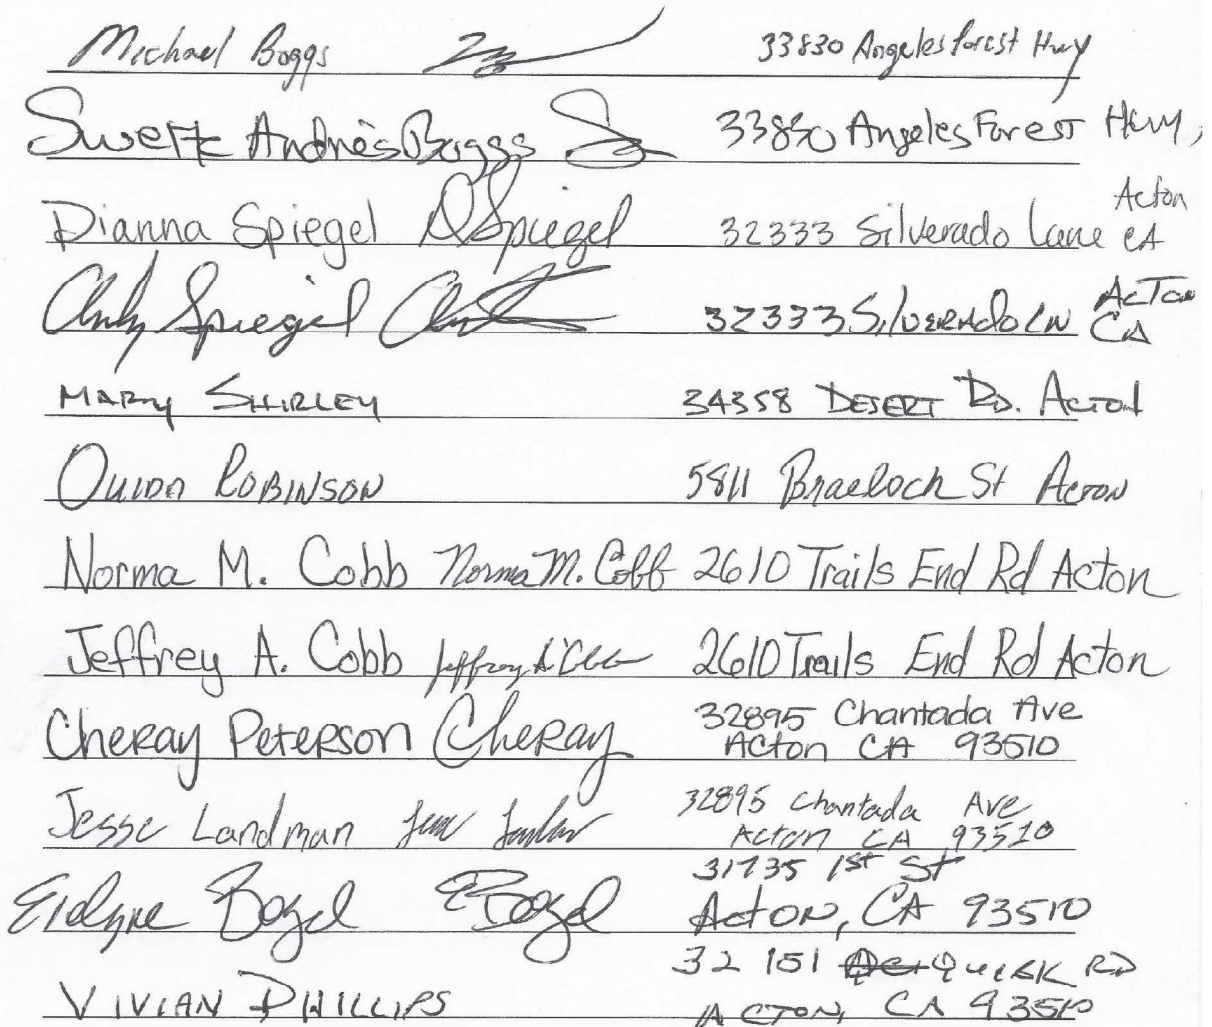 Michael Boggs 33830 Angeles Forest Hwy
Andrés Boggs 33830 Angeles Forest Hwy,
Dianna Spiegel DSpiegel 32333 Silverado Lane Acton CA
Andy Spiegel 32333 Silverado LN Acton CA
MARY SHIRLEY 34358 DESERT RD. ACTON
OUIDA ROBINSON 5811 Braeloch St ACTON
Norma M. Cobb Norma M. Cobb 2610 Trails End Rd Acton
Jeffrey A. Cobb Jeffrey A Cobb 2610 Trails End Rd Acton
Cheray Peterson Cheray 32895 Chantada Ave
Acton CA 93510
Jesse Landman 32895 Chantada Ave
Acton CA 93510
31735 1st St
Bogel EBogel Acton, CA 93510
32151 QUIRK RD
VIVIAN PHILLIPS ACTON, CA 93510